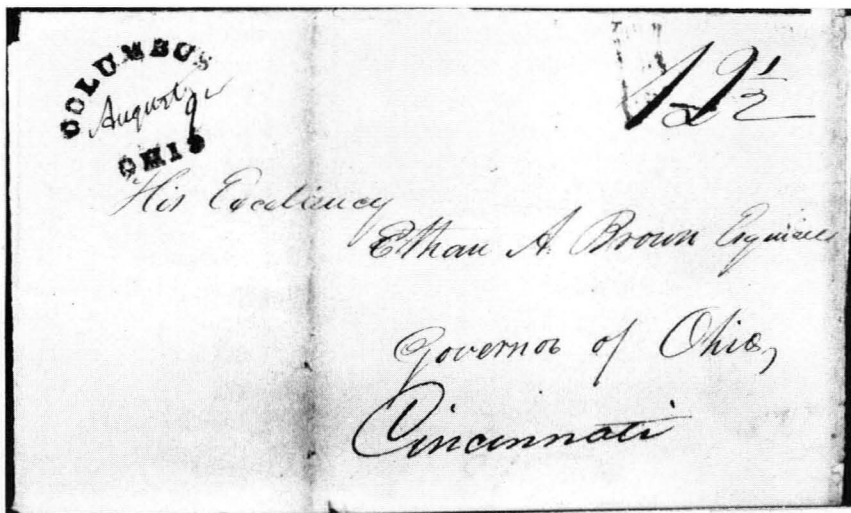 COLUMBUS
August 9
OHIO
12½
His Excellency
Ethan A. Brown Esquire
Governor of Ohio,
Cincinnati